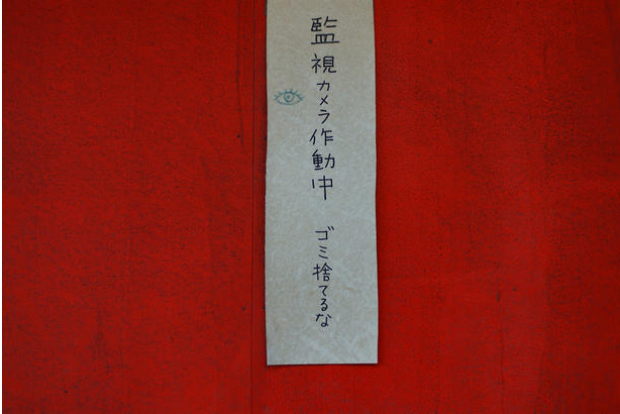 監視カメラ作動中　ゴミ捨てるな